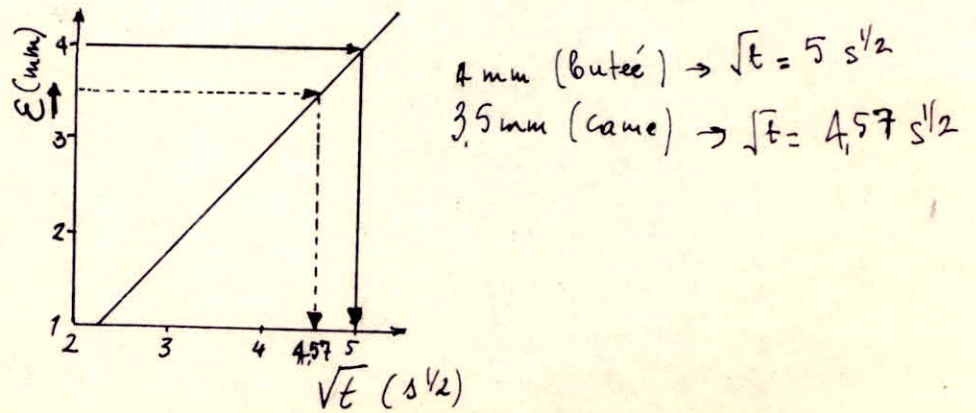 ε (mm)
4
3
2
1
2 3 4 4,57 5
√t (s^1/2)
4 mm (buteé) → √t = 5 s^1/2
3,5 mm (came) → √t = 4,57 s^1/2